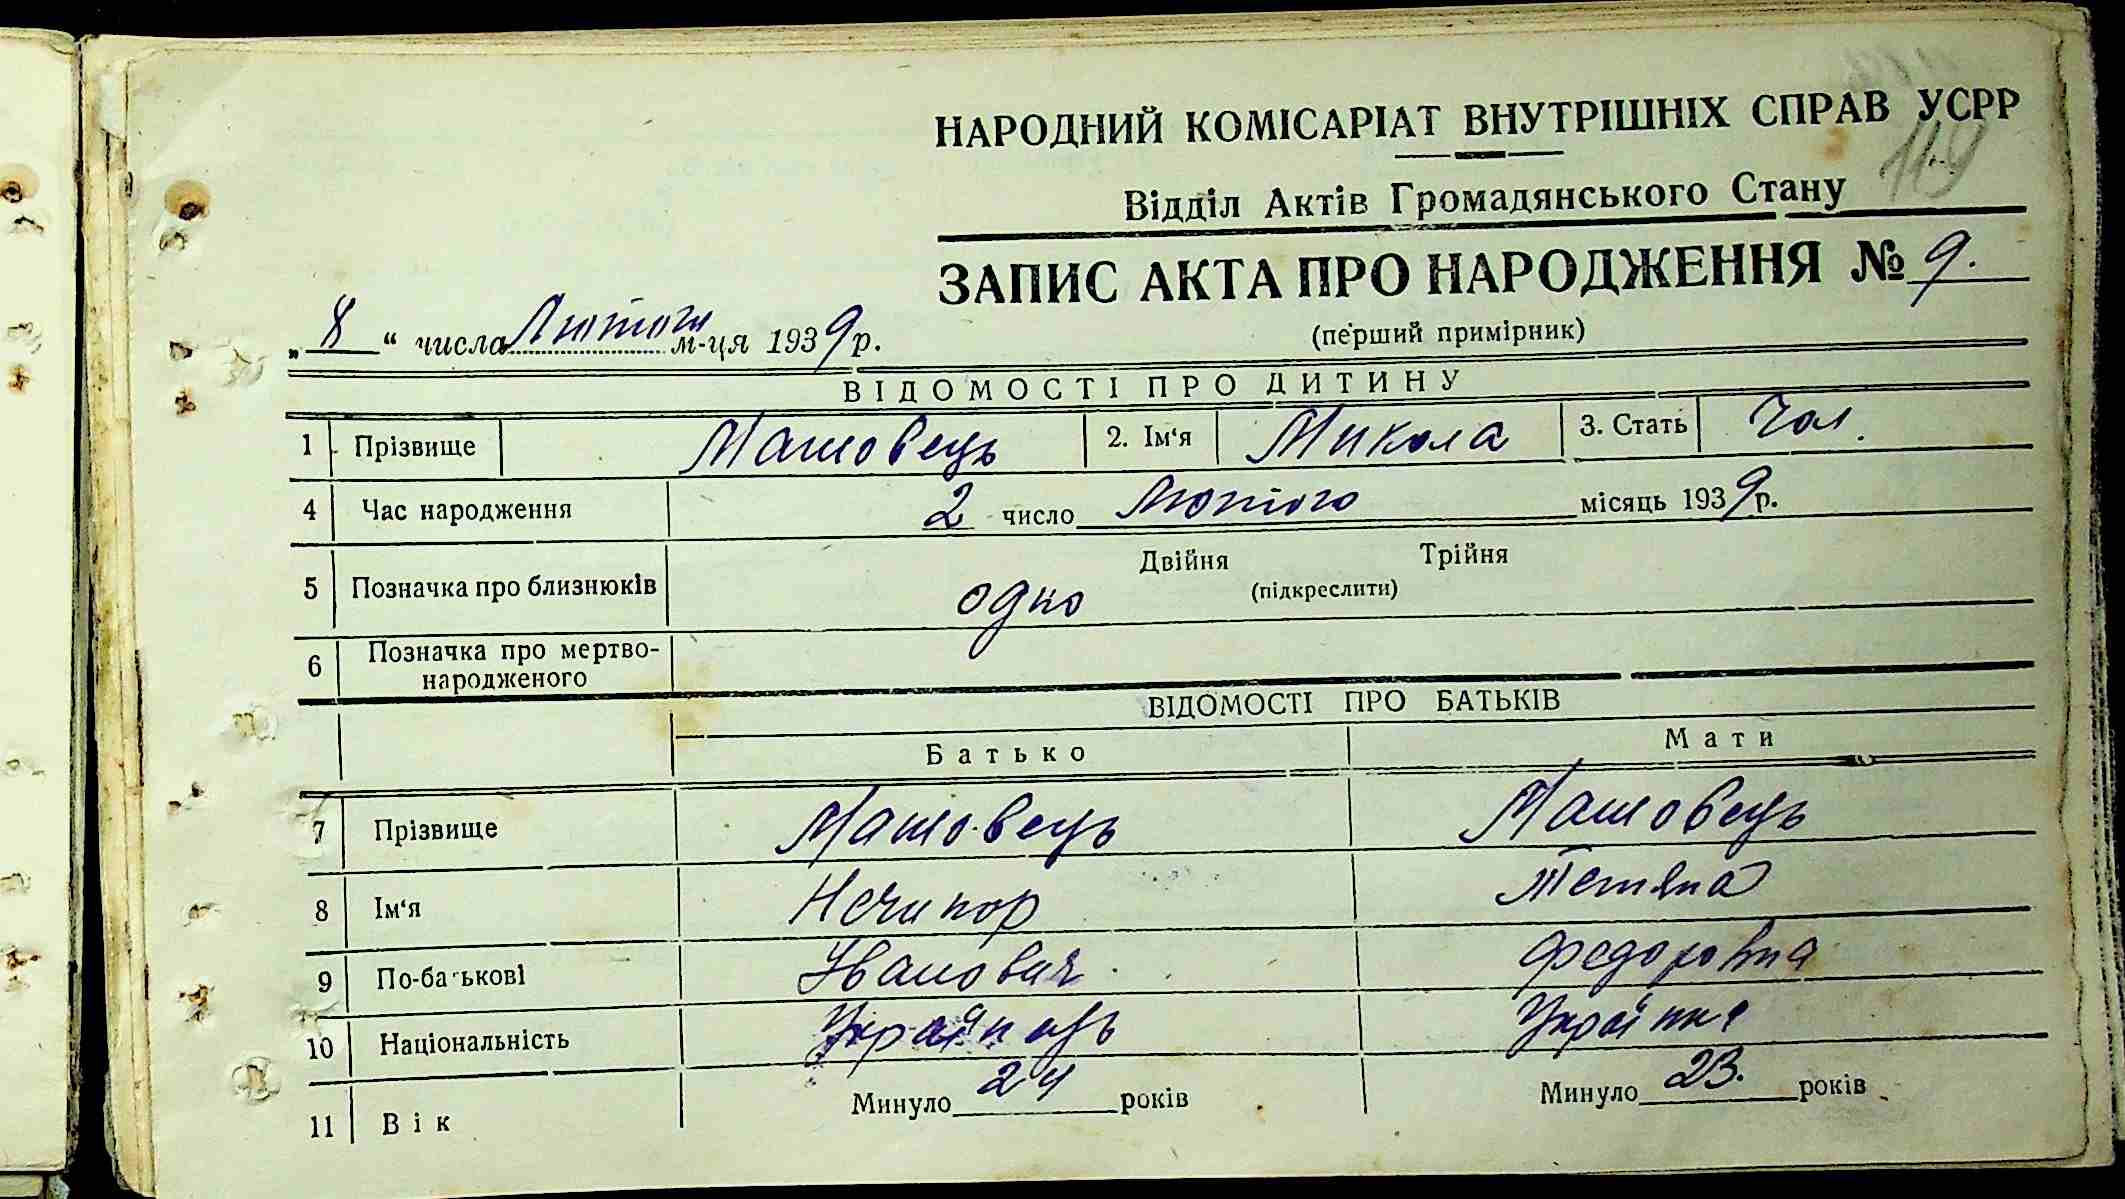 НАРОДНИЙ КОМІСАРІАТ ВНУТРІШНІХ СПРАВ УСРР
119
Відділ Актів Громадянського Стану
ЗАПИС АКТА ПРО НАРОДЖЕННЯ № 9.
(перший примірник)
„ 8 “ числа Лютого м-ця 1939 р.
ВІДОМОСТІ ПРО ДИТИНУ
1 Прізвище Машовець 2. Ім‘я Микола 3. Стать Чол.
4 Час народження 2 число Лютого місяць 1939 р.
Двійня Трійня
5 Позначка про близнюків одно (підкреслити)
6 Позначка про мертво-
народженого
ВІДОМОСТІ ПРО БАТЬКІВ
Батько Мати
7 Прізвище Машовець Машовець
8 Ім‘я Нечипор Тетяна
9 По-батькові Іванович Федоровна
10 Національність Українець Українка
11 Вік Минуло 24 років Минуло 23. років